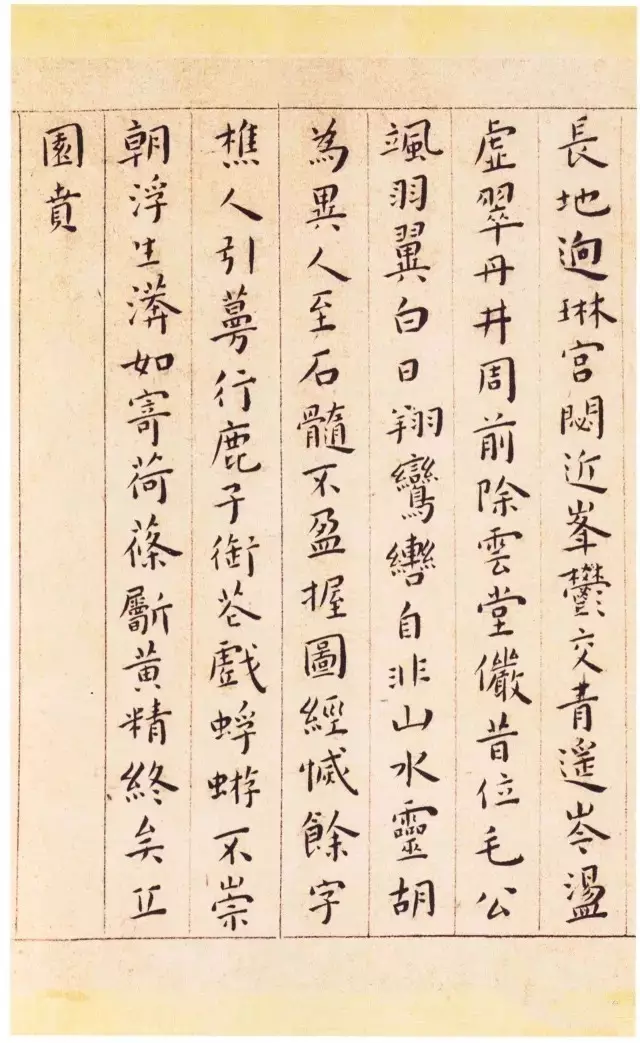 長地逈琳宮閟近峯鬱交青遥岑盪
虛翠丹井周前除雲堂儼昔位毛公
颯羽翼白日翔鸞轡自非山水靈胡
為異人至石髓不盈握圖經餘字
樵人引蔓行鹿子銜花戲蜉蝣不崇
朝浮生漭如寄荷蓧斸黄精終矣丘
園賁